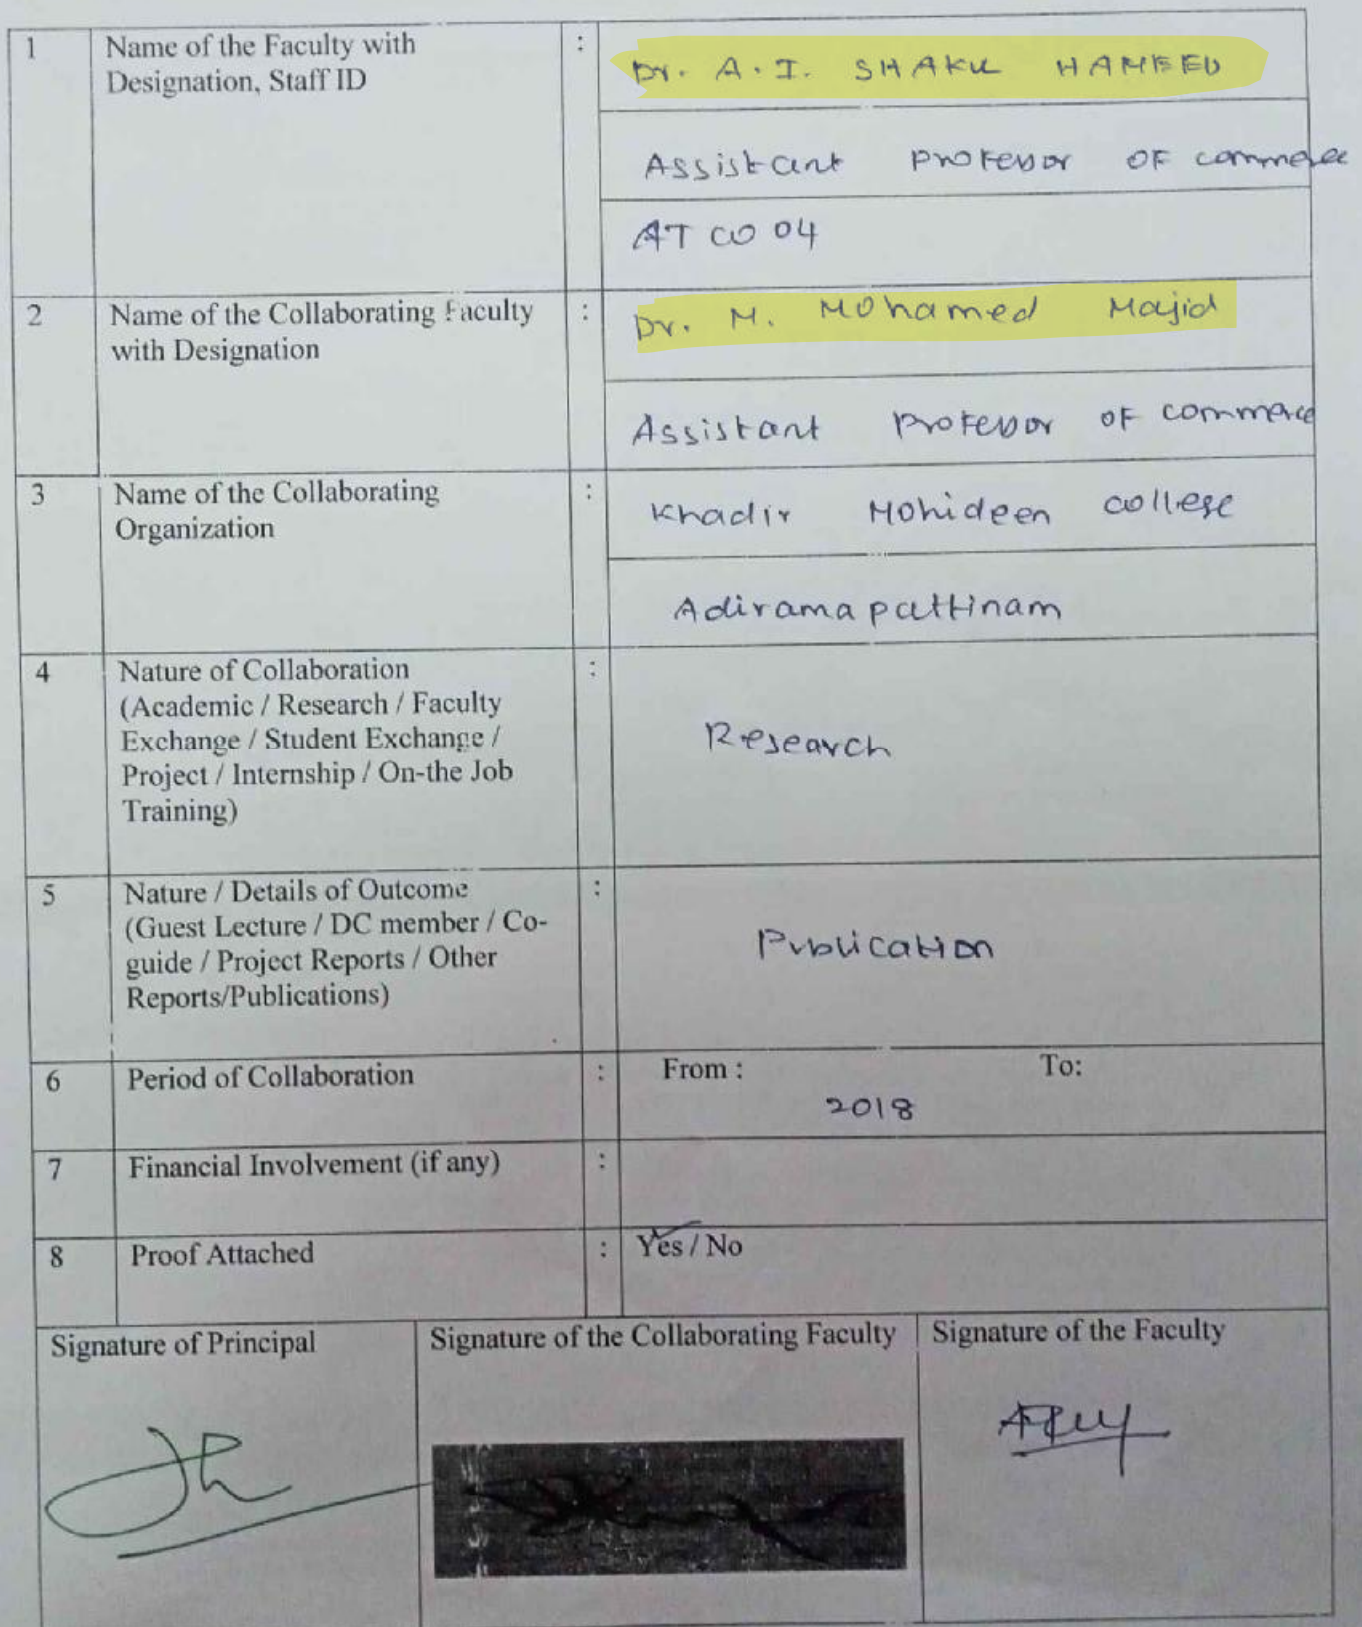 1 Name of the Faculty with : Dr. A. I. SHAKU HAMEED
Designation, Staff ID
Assistant professor OF commerce
AT CO 04
2 Name of the Collaborating Faculty : Dr. M. Mohamed Majid
with Designation
Assistant professor OF commerce
3 Name of the Collaborating : Khadir Mohideen college
Organization
Adiramapattinam
4 Nature of Collaboration :
(Academic / Research / Faculty
Exchange / Student Exchange / Research
Project / Internship / On-the Job
Training)
5 Nature / Details of Outcome :
(Guest Lecture / DC member / Co-
guide / Project Reports / Other Publication
Reports/Publications)
6 Period of Collaboration : From : To:
2018
7 Financial Involvement (if any) :
8 Proof Attached : Yes / No
Signature of Principal Signature of the Collaborating Faculty Signature of the Faculty